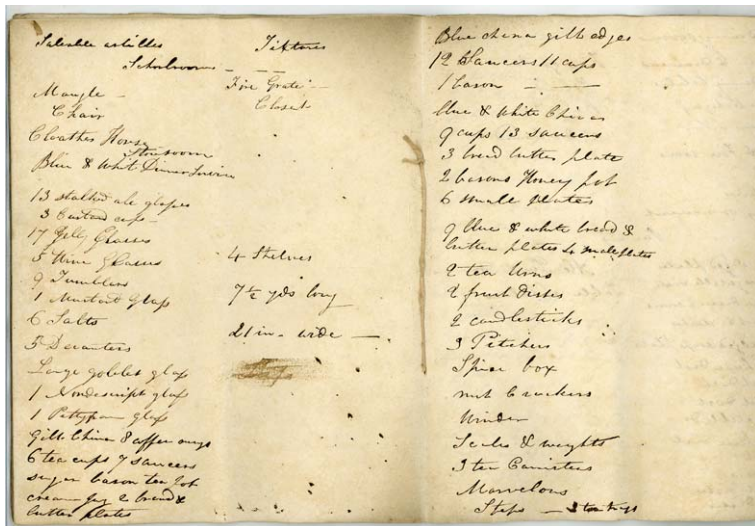 Saleable articles Fixtures
Schoolroom
Mangle Fire Grate
Chair Closet
Cloathes Horse
Storeroom
Blue & Whit Dinner Servise
13 stalked ale glases
3 Custard cups
17 Gelly Glasses
5 Wine Glasses 4 Shelves
9 Tumblers
1 Mustard Glass 7 1/2 yds long
6 Salts
21 in. wide
5 Decanters
Large goblet glass
1 Nondescript glass
1 Pattypan glass
Gilt China 8 coffee cups
6 tea cups 7 saucers
sugar bason tea pot
cream jug 2 bread &
butter plates
Blue china gilt edges
12 Saucers 11 cups
1 bason
Blue & White China
9 cups 13 saucers
3 bread butter plate
2 basons Honey pot
6 small plates
9 blue & white bread &
butter plates 4 small plates
2 tea Urns
2 fruit Dishes
2 candlesticks
3 Pitchers
Spice box
nut Crackers
Winder
Scales & weights
3 tea Canisters
Marvelous
Steps